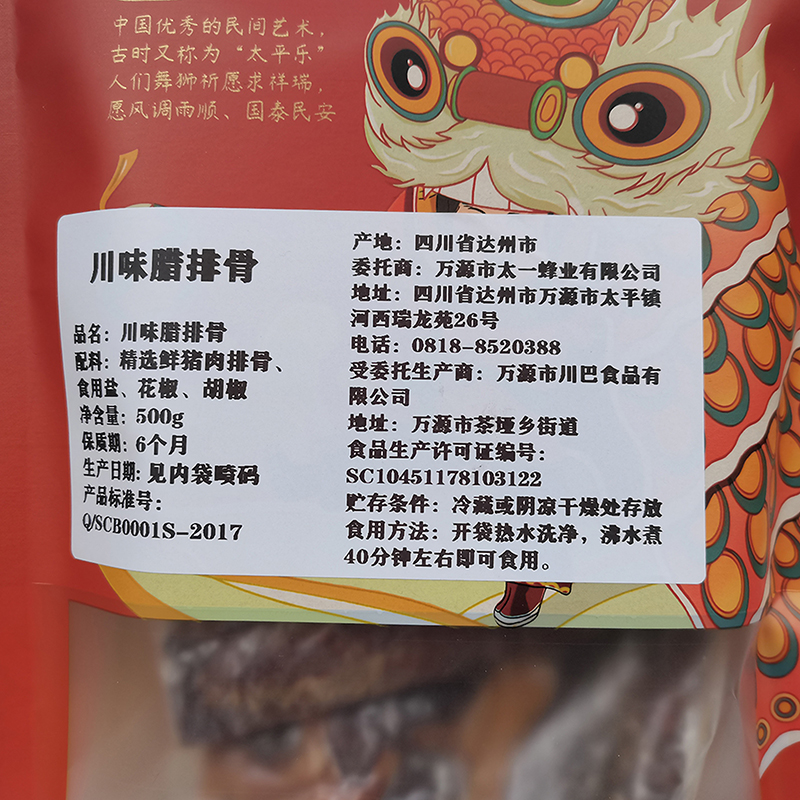 中国优秀的民间艺术,
古时又称为“太平乐”
人们舞狮祈愿求祥瑞,
愿风调雨顺、国泰民安
川味腊排骨
品名：川味腊排骨
配料：精选鲜猪肉排骨、
食用盐、花椒、胡椒
净含量：500g
保质期：6个月
生产日期：见内袋喷码
产品标准号：
Q/SCB0001S-2017
产地：四川省达州市
委托商：万源市太一蜂业有限公司
地址：四川省达州市万源市太平镇
河西瑞龙苑26号
电话：0818-8520388
受委托生产商：万源市川巴食品有
限公司
地址：万源市茶垭乡街道
食品生产许可证编号：
SC10451178103122
贮存条件：冷藏或阴凉干燥处存放
食用方法：开袋热水洗净，沸水煮
40分钟左右即可食用。